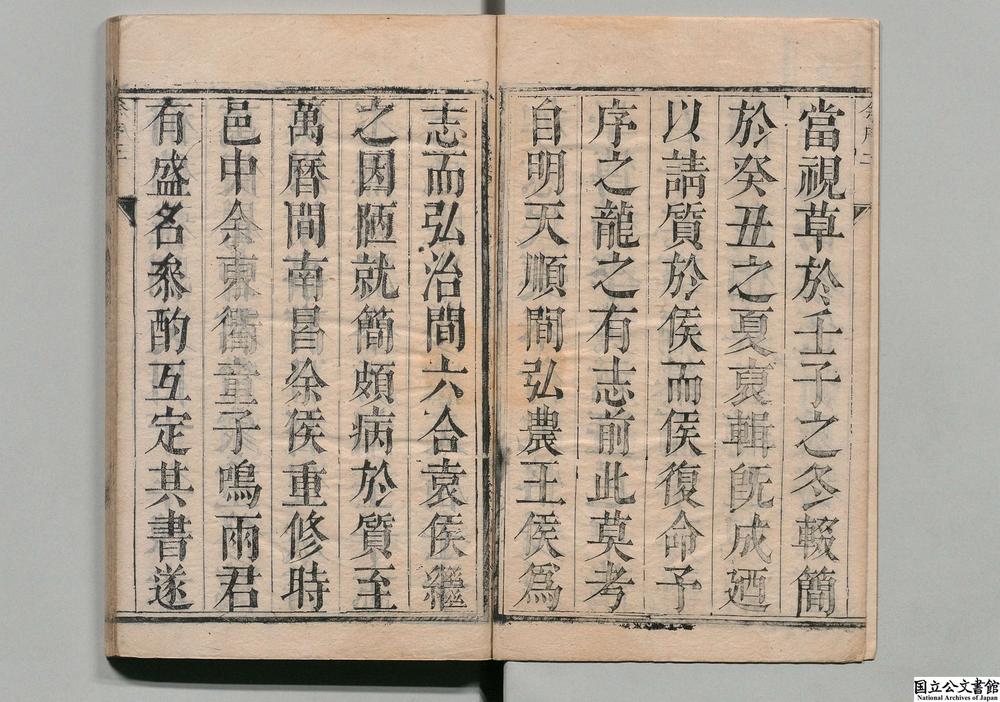 當視草於壬子之冬輟簡
於癸丑之夏裒輯旣成廼
以請質於侯而侯復命予
序之龍之有志前此莫考
自明天順間弘農王侯爲
志而弘治間六合袁侯繼
之因陋就簡頗病於質至
萬曆間南昌徐侯重修時
邑中余東衢童子鳴兩君
有盛名叅酌互定其書遂
国立公文書館
National Archives of Japan